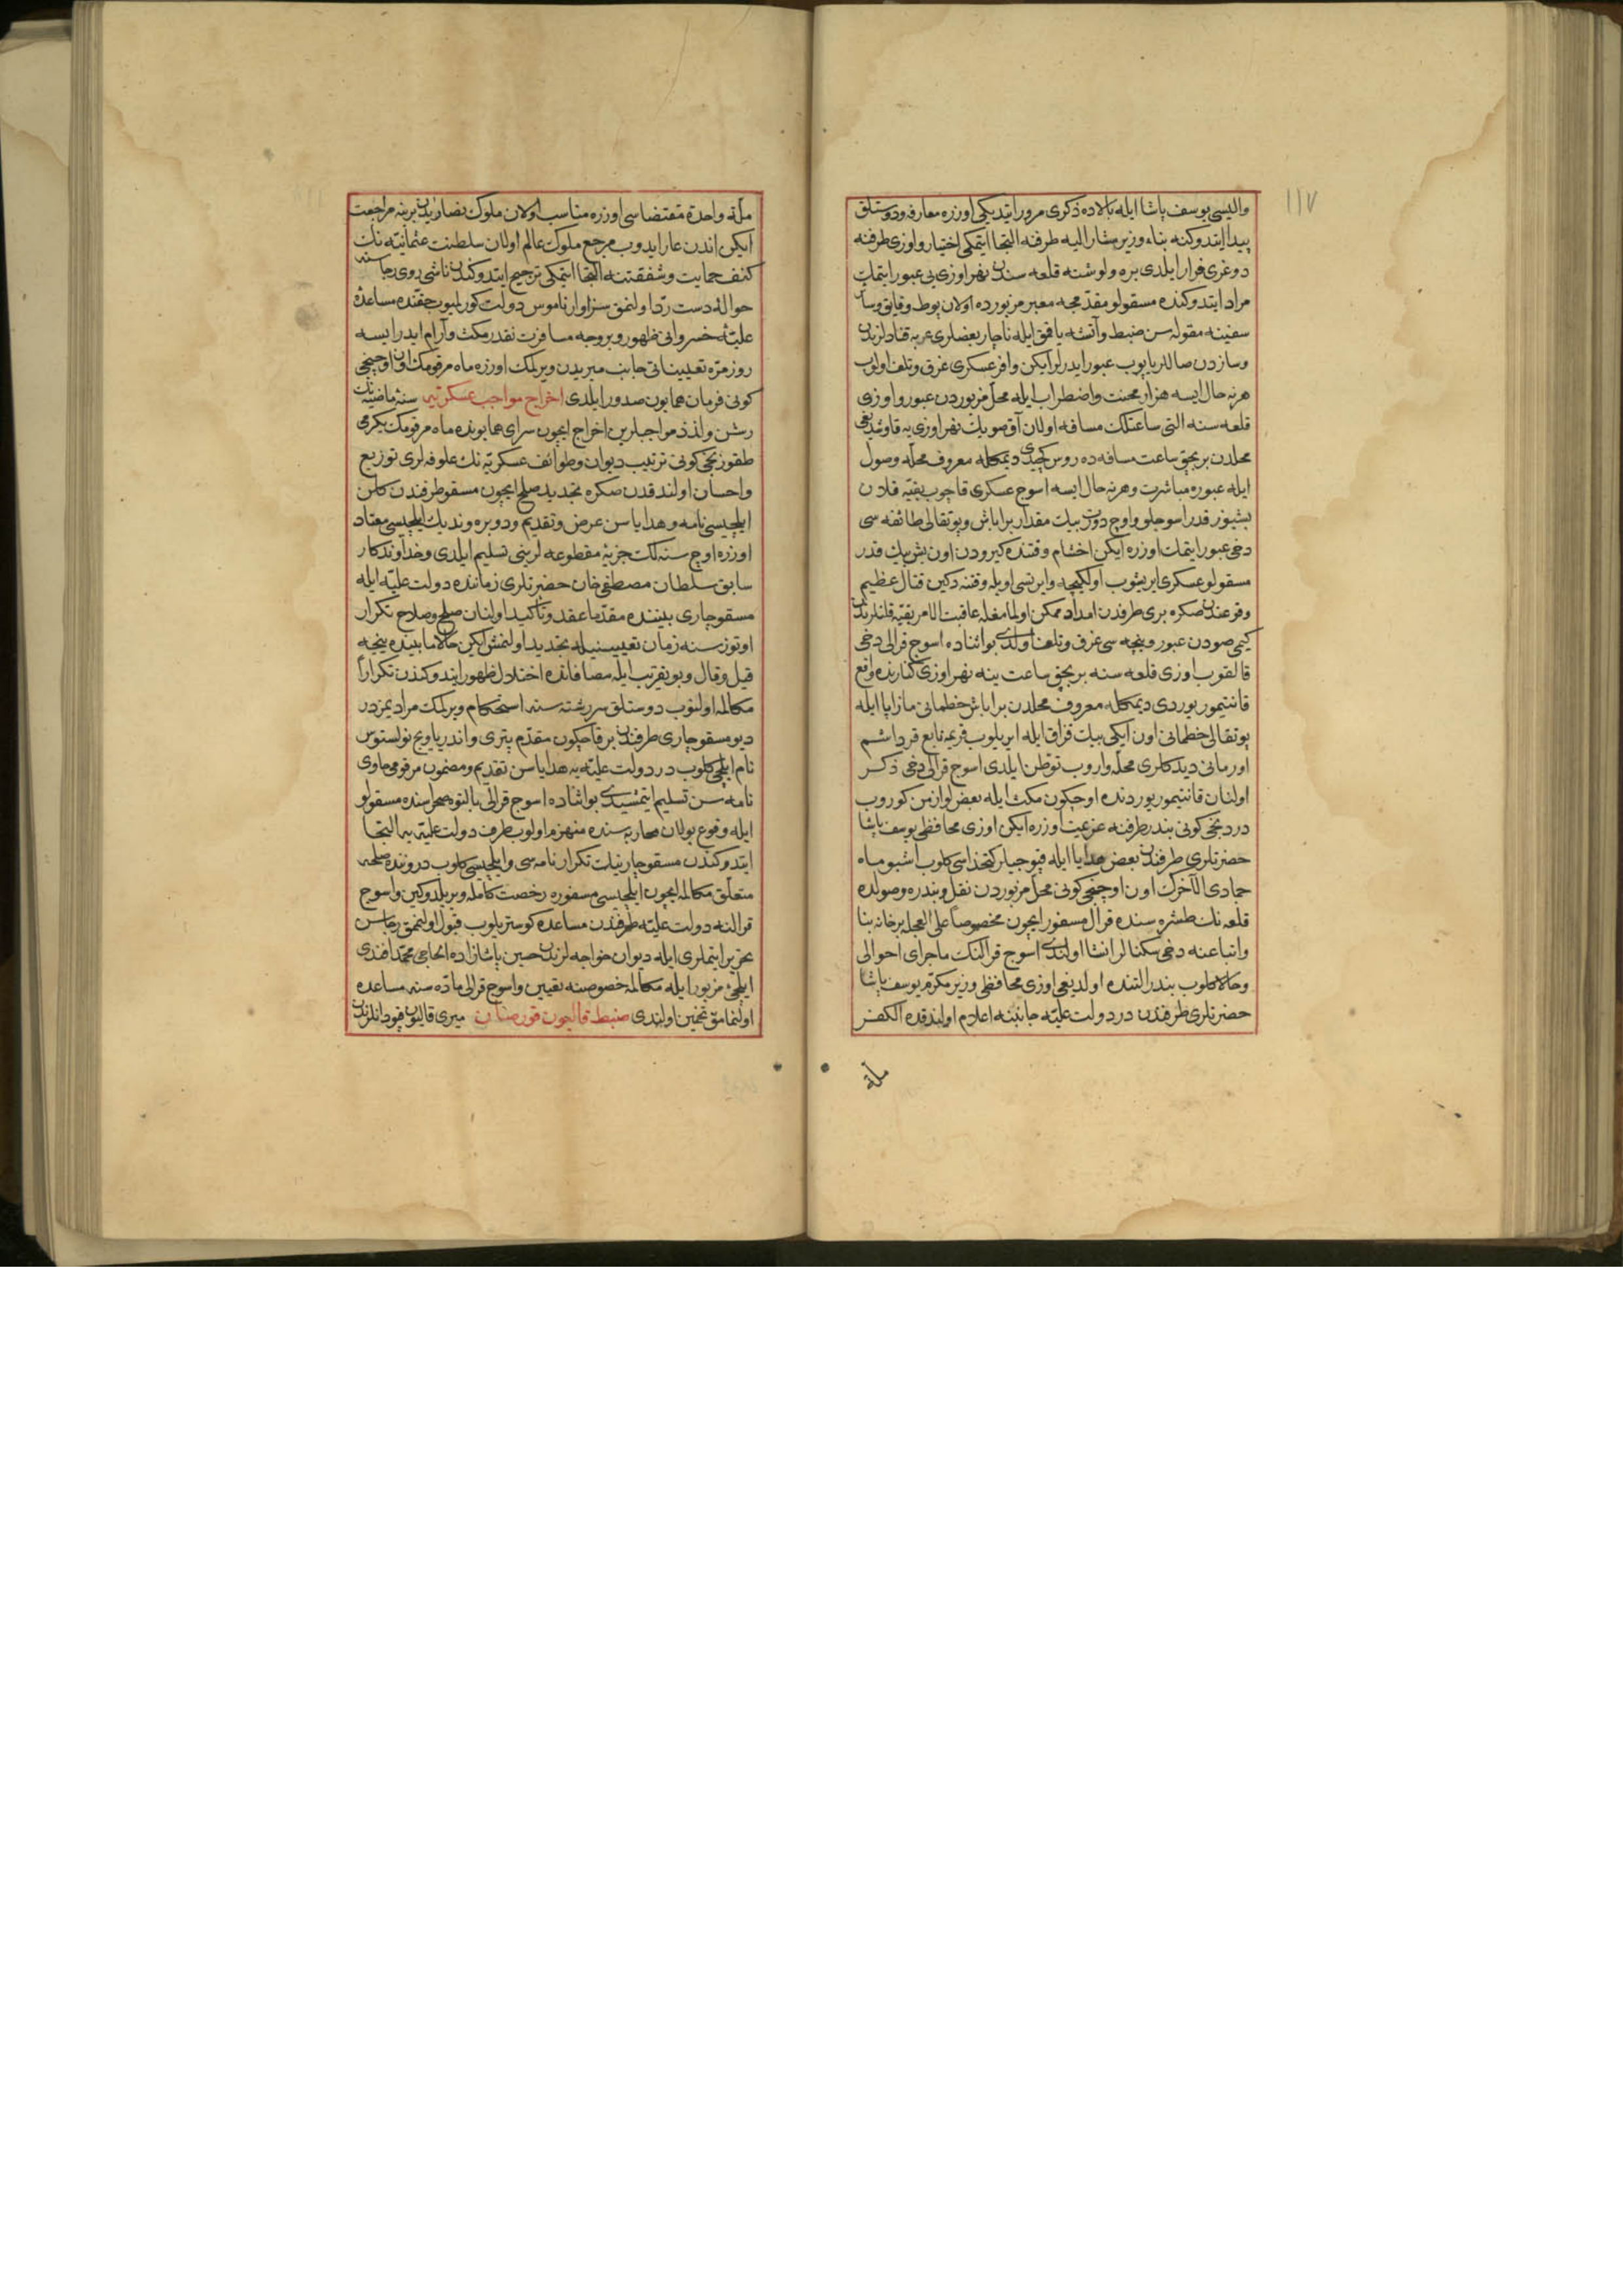 ١١٧
والیسی یوسف پاشا ایله بالاده ذکری مرور ایتدیکی اوزره معارفه و دوستلق
پیدا ایتدوکنه بناء وزیر مشار الیه طرفنه التجا ایتمکی اختیار و اوزی طرفنه
دوغری فرار ایلدی بره ولوشنه قلعه سندن نهر اوزی یی عبور ایتمك
مراد ایتدوکنده مسقولو مقدمجه معبر مزبورده اولان یوط و قایق و سائر
سفینه مقوله سن ضبط و آتشه یاقمق ایله ناچار بعضلری عربه قنادلرندن
و سازدن صاللر یاپوب عبور ایدرلر ایکن وافر عسکری غرق و تلف اولوب
هر نه حال ایسه هزار محنت و اضطراب ایله محل مزبوردن عبور و اوزی
قلعه سنه التی ساعتلك مسافه اولان آق صوینك نهر اوزی یه قاوشدیغی
محلدن بر بچق ساعت مسافه ده روس کچیدی دیمکله معروف محله وصول
ایله عبوره مباشرت و هر نه حال ایسه اسوج عسکری قاچوب بقیه قلان
بشیوز قدر اسوجلو و اوچ درت بیك مقدار براباش و پوتقالی طائفه سی
دخی عبور ایتمك اوزره ایکن اخشام وقتنده کیرودن اون بش بیك قدر
مسقولو عسکری ایریشوب اولکیجه و ایرتسی اویله وقتنه دکین قتال عظیم
وقوعندن صکره بری طرفدن امداد ممکن اولمامغله عاقبت الامر بقیه قلنلرندن
کیمی صودن عبور و نیچه سی غرق و تلف اولدی بو اثناده اسوج قرالی دخی
قالقوب اوزی قلعه سنه بر بچق ساعت ینه نهر اوزی کنارنده واقع
قانتیمور یوردی دیمکله معروف محلدن براباش خطمانی مازاپا ایله
پوتقالی خطمانی اون ایکی بیك قزاق ایله ایریلوب قریمه تابع قرداشم
اورمانی دیدکلری محله واروب توطن ایلدی اسوج قرالی دخی ذکر
اولنان قانتیمور یوردنده اوچکون مکث ایله بعض لوازمن کوروب
دردنجی کونی بندر طرفنه عزیمت اوزره ایکن اوزی محافظی یوسف پاشا
حضرتلری طرفندن بعض هدایا ایله قپوجیلر کتخداسی کلوب اشبو ماه
جمادی الآخرك اون اوچنجی کونی محل مزبوردن نقل و بندره وصولده
قلعه نك طشره سنده قرال مسفور ایچون مخصوصا علی العجله بر خانه بنا
و اتباعنه دخی سکنالر انشا اولندی اسوج قرالنك ماجرای احوالی
و حالا کلوب بندر التنده اولدیغی اوزی محافظی وزیر مکرم یوسف پاشا
حضرتلری طرفندن در دولت علیه جانبنه اعلام اولندقده الکفر
ملة
ملة واحدة مقتضاسی اوزره مناسب اولان ملوك نصارادن برینه مراجعت
ایکن اندن عار ایدوب مرجع ملوك عالم اولان سلطنت عثمانیه نك
کنف حمایت و شفقتنه التجا ایتمکی ترجیح ایتدوکندن ناشی روی رجاسنه
حواله دست رد اولنمق سزاوار ناموس دولت کورلمیوب حقنده مساعده
علیه خسروانی ظهور و بر وجه مسافرت نقدر مکث و آرام ایدر ایسه
روزمره تعییناتی جانب میریدن ویرلمك اوزره ماه مرقومك اون اوچنجی
کونی فرمان همایون صدور ایلدی اخراج مواجب عسکریه سنه ماضیه نك
رشن و لذذ مواجبلرین اخراج ایچون سرای همایونده ماه مرقومك یکرمی
طقوزنجی کونی ترتیب دیوان و طوائف عسکریه نك علوفه لری توزیع
و احسان اولندقدن صکره تجدید صلح ایچون مسقو طرفندن کلن
ایلچیسی نامه و هدایاسن عرض و تقدیم و دوبره وندیك ایلچیسی معتاد
اوزره اوچ سنه لك جزیه مقطوعه لرینی تسلیم ایلدی و خداوندکار
سابق سلطان مصطفی خان حضرتلری زماننده دولت علیه ایله
مسقو چاری بیننده مقدما عقد و تاکید اولنان صلح و صلاح تکرار
اوتوز سنه زمان تعیینیله تجدید اولنمش لیکن حالا مابینده نیجه
قیل و قال و بو تقریب ایله مصافاتده اختلال ظهور ایتدوکندن تکرارا
مکالمه اولنوب دوستلق سررشته سنه استحکام ویرلمك مرادیمزدر
دیو مسقو چاری طرفندن بر قاچکون مقدم پتری واندریاویچ تولستوی
نام ایلچی کلوب در دولت علیه یه هدایاسن تقدیم و مضمون مرقومی حاوی
نامه سن تسلیم ایتمشیدی بو اثناده اسوج قرالی پالتوه صحراسنده مسقولو
ایله وقوع بولان محاربه سنده منهزم اولوب طرف دولت علیه یه التجا
ایتدوکندن مسقو چارینك تکرار نامه سی و ایلچیسی کلوب درونده صلحه
متعلق مکالمه ایچون ایلچیسی مسفوره رخصت کامله ویریلدوکین و اسوج
قرالنه دولت علیه طرفندن مساعده کوستریلوب قبول اولنمق رجاسن
تحریر ایتملری ایله دیوان خواجه لرندن حسین پاشازاده الحاجی محمد افندی
ایلچی مزبور ایله مکالمه خصوصنه تعیین و اسوج قرالی ماده سنه مساعده
اولنمامق تخمین اولندی ضبط قالیون قورصان میری قالیون قپودانلرندن